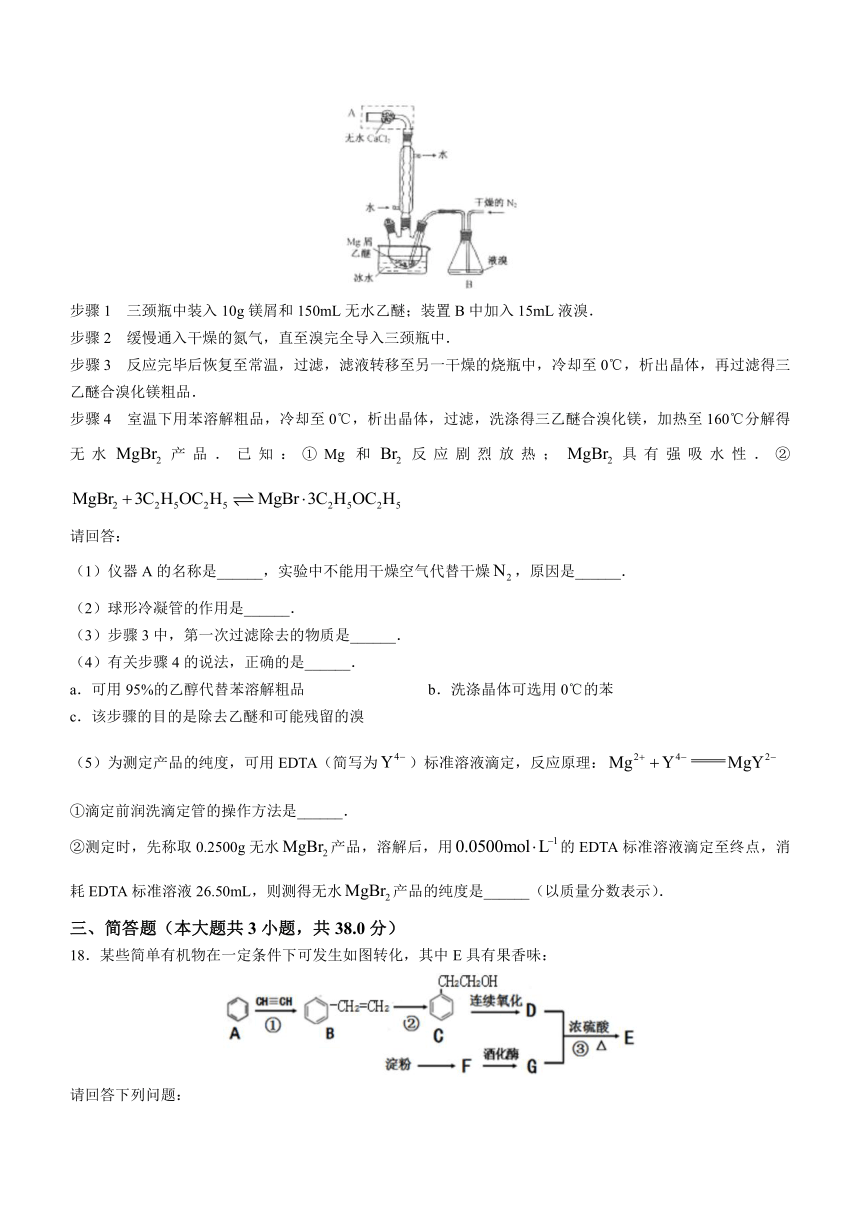 A
无水 CaCl₂
水
水
干燥的 N₂
Mg 屑
乙醚
液溴
冰水
B
步骤 1 三颈瓶中装入 10g 镁屑和 150mL 无水乙醚；装置 B 中加入 15mL 液溴．
步骤 2 缓慢通入干燥的氮气，直至溴完全导入三颈瓶中．
步骤 3 反应完毕后恢复至常温，过滤，滤液转移至另一干燥的烧瓶中，冷却至 0℃，析出晶体，再过滤得三
乙醚合溴化镁粗品．
步骤 4 室温下用苯溶解粗品，冷却至 0℃，析出晶体，过滤，洗涤得三乙醚合溴化镁，加热至 160℃分解得
无水 MgBr₂ 产品．已知：① Mg 和 Br₂ 反应剧烈放热；MgBr₂ 具有强吸水性．②
MgBr₂ + 3C₂H₅OC₂H₅ ⇌ MgBr·3C₂H₅OC₂H₅
请回答：
（1）仪器 A 的名称是______，实验中不能用干燥空气代替干燥 N₂，原因是______．
（2）球形冷凝管的作用是______．
（3）步骤 3 中，第一次过滤除去的物质是______．
（4）有关步骤 4 的说法，正确的是______．
a．可用 95%的乙醇代替苯溶解粗品 b．洗涤晶体可选用 0℃的苯
c．该步骤的目的是除去乙醚和可能残留的溴
（5）为测定产品的纯度，可用 EDTA（简写为 Y⁴⁻）标准溶液滴定，反应原理：Mg²⁺ + Y⁴⁻ ═══ MgY²⁻
①滴定前润洗滴定管的操作方法是______．
②测定时，先称取 0.2500g 无水 MgBr₂ 产品，溶解后，用 0.0500mol·L⁻¹ 的 EDTA 标准溶液滴定至终点，消
耗 EDTA 标准溶液 26.50mL，则测得无水 MgBr₂ 产品的纯度是______（以质量分数表示）．
三、简答题（本大题共 3 小题，共 38.0 分）
18．某些简单有机物在一定条件下可发生如图转化，其中 E 具有果香味：
CH₂CH₂OH
CH≡CH ① -CH₂=CH₂ ② 连续氧化 D
A B C 浓硫酸 ③ △ E
淀粉 F 酒化酶 G
请回答下列问题：